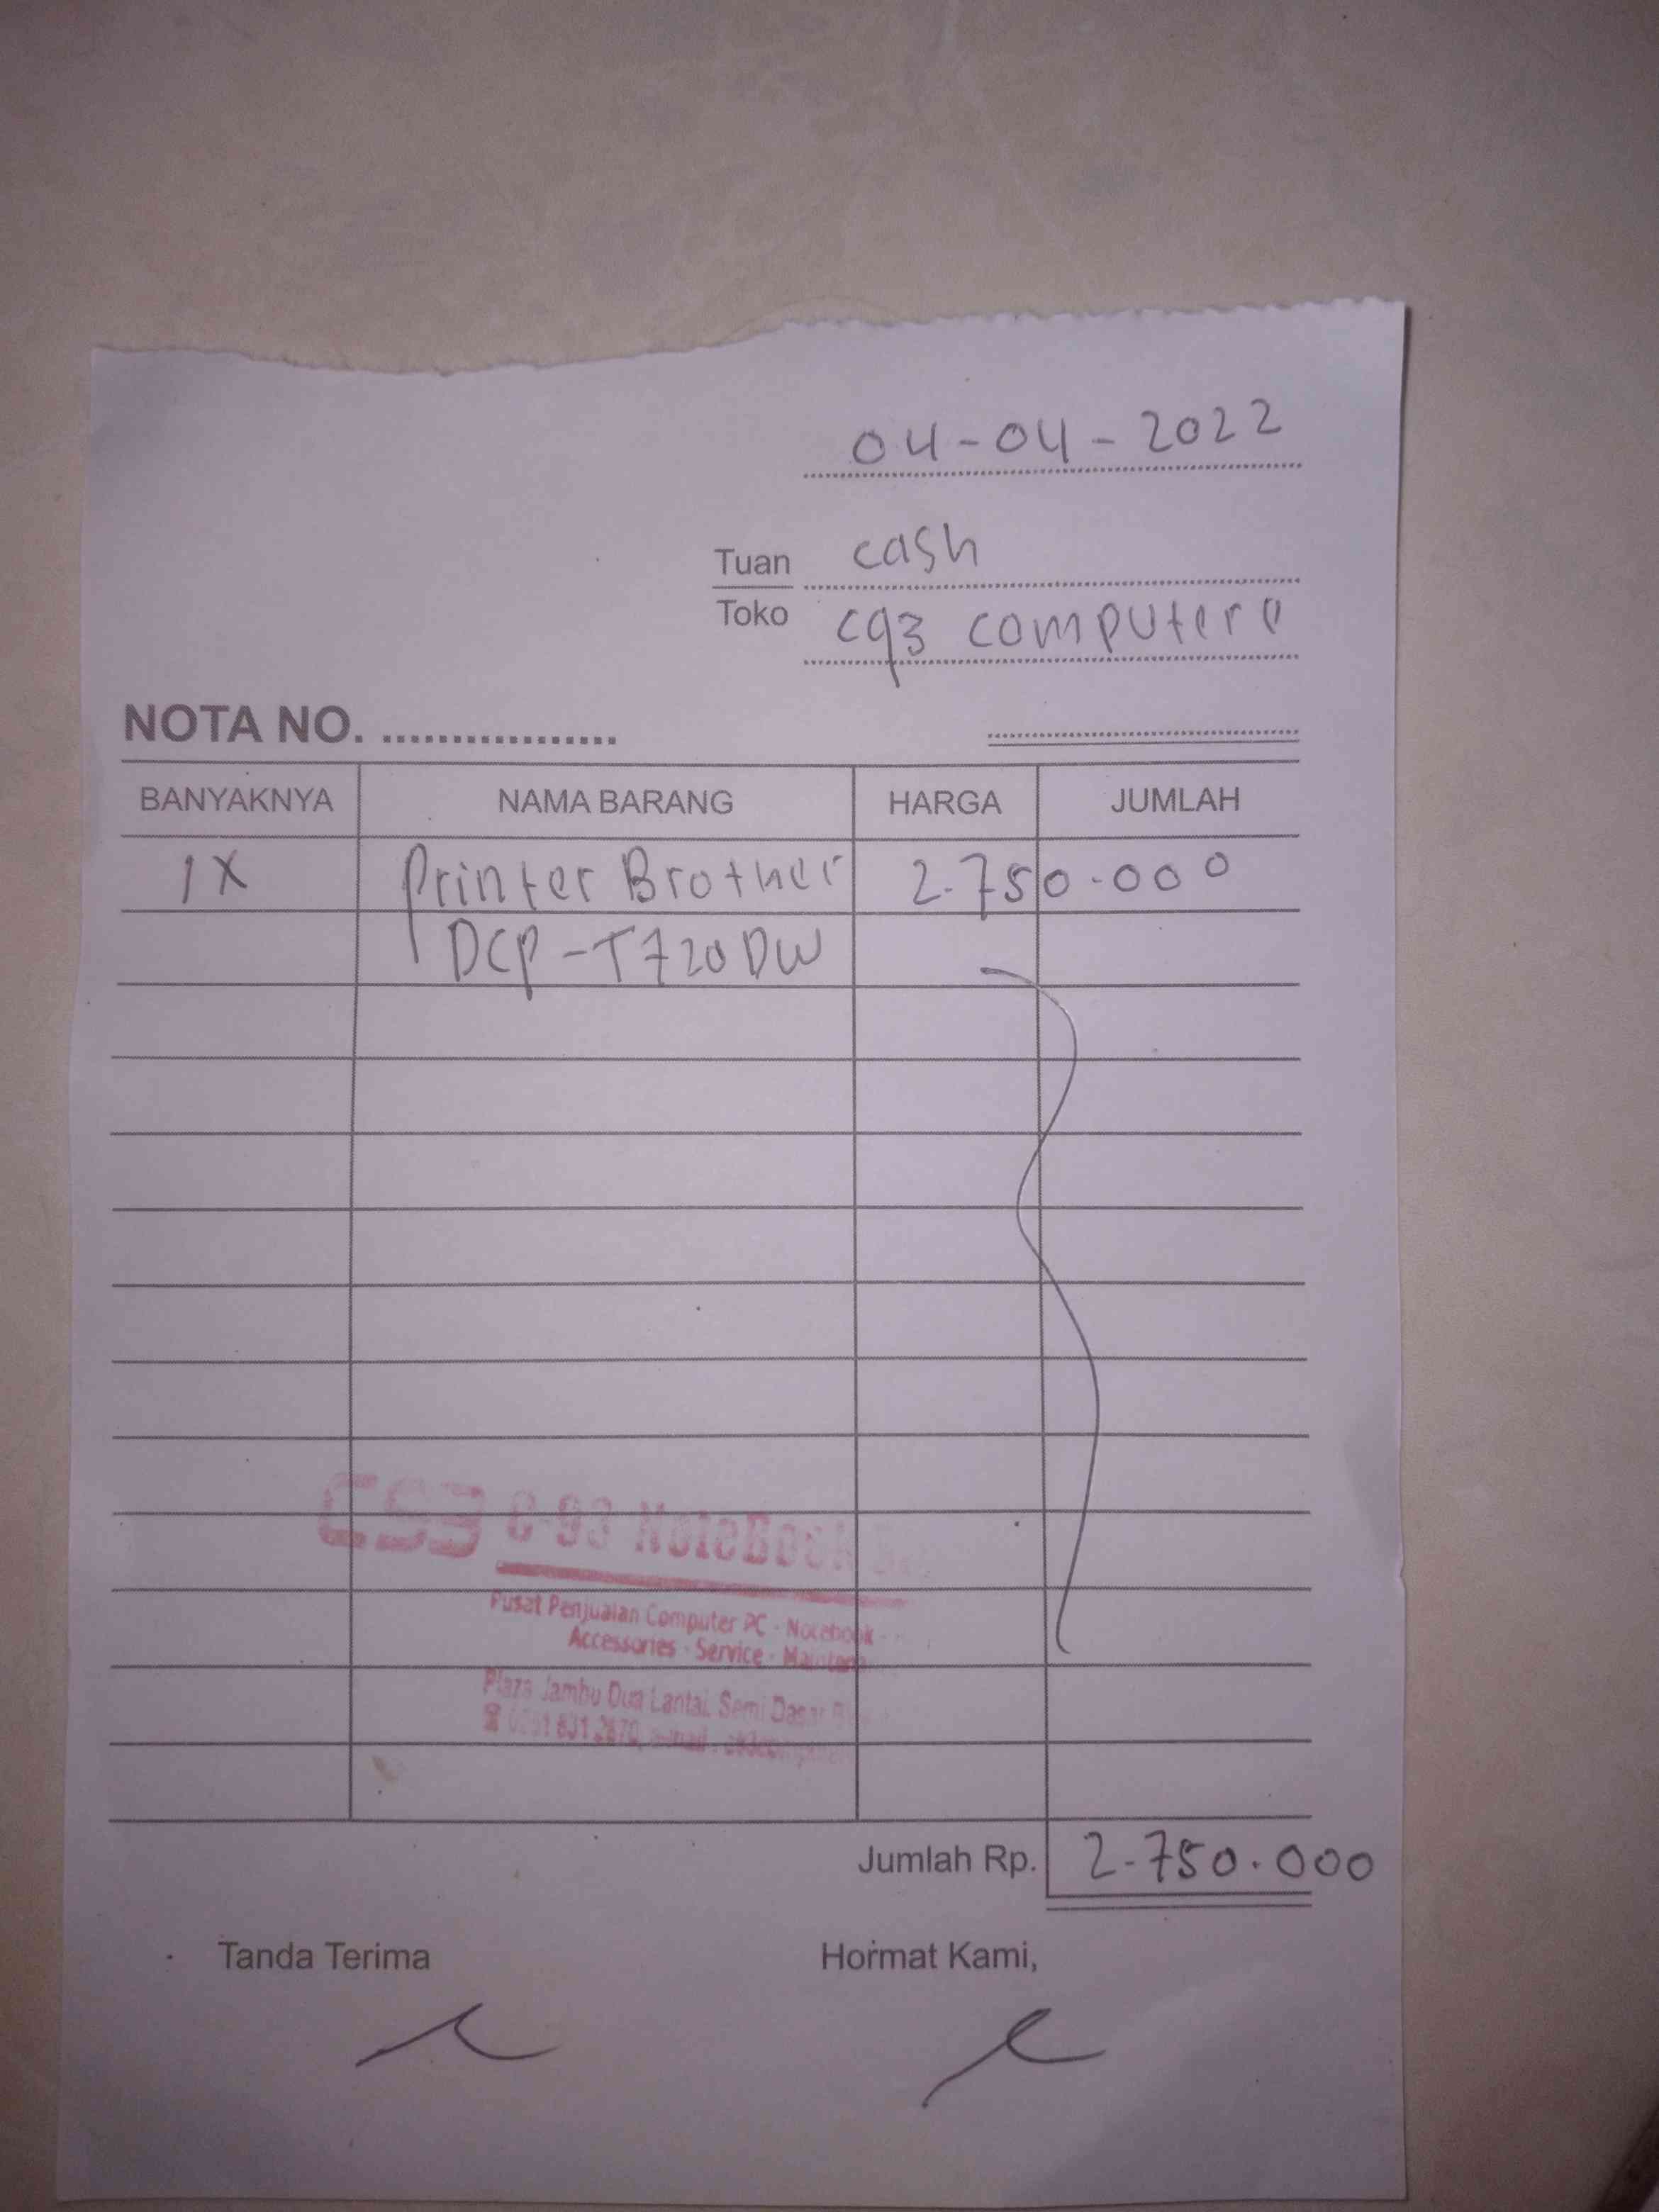 04-04-2022
Tuan cash
Toko c93 computer
NOTA NO. ..................
BANYAKNYA NAMA BARANG HARGA JUMLAH
1X Printer Brother 2.750.000
DCP-T720DW
C93 C-93 NoteBook
Pusat Penjualan Computer PC - Notebook -
Accessories - Service -
Plaza Jambu Dua Lantai Semi Dasar
Jumlah Rp. 2.750.000
Tanda Terima Hormat Kami,